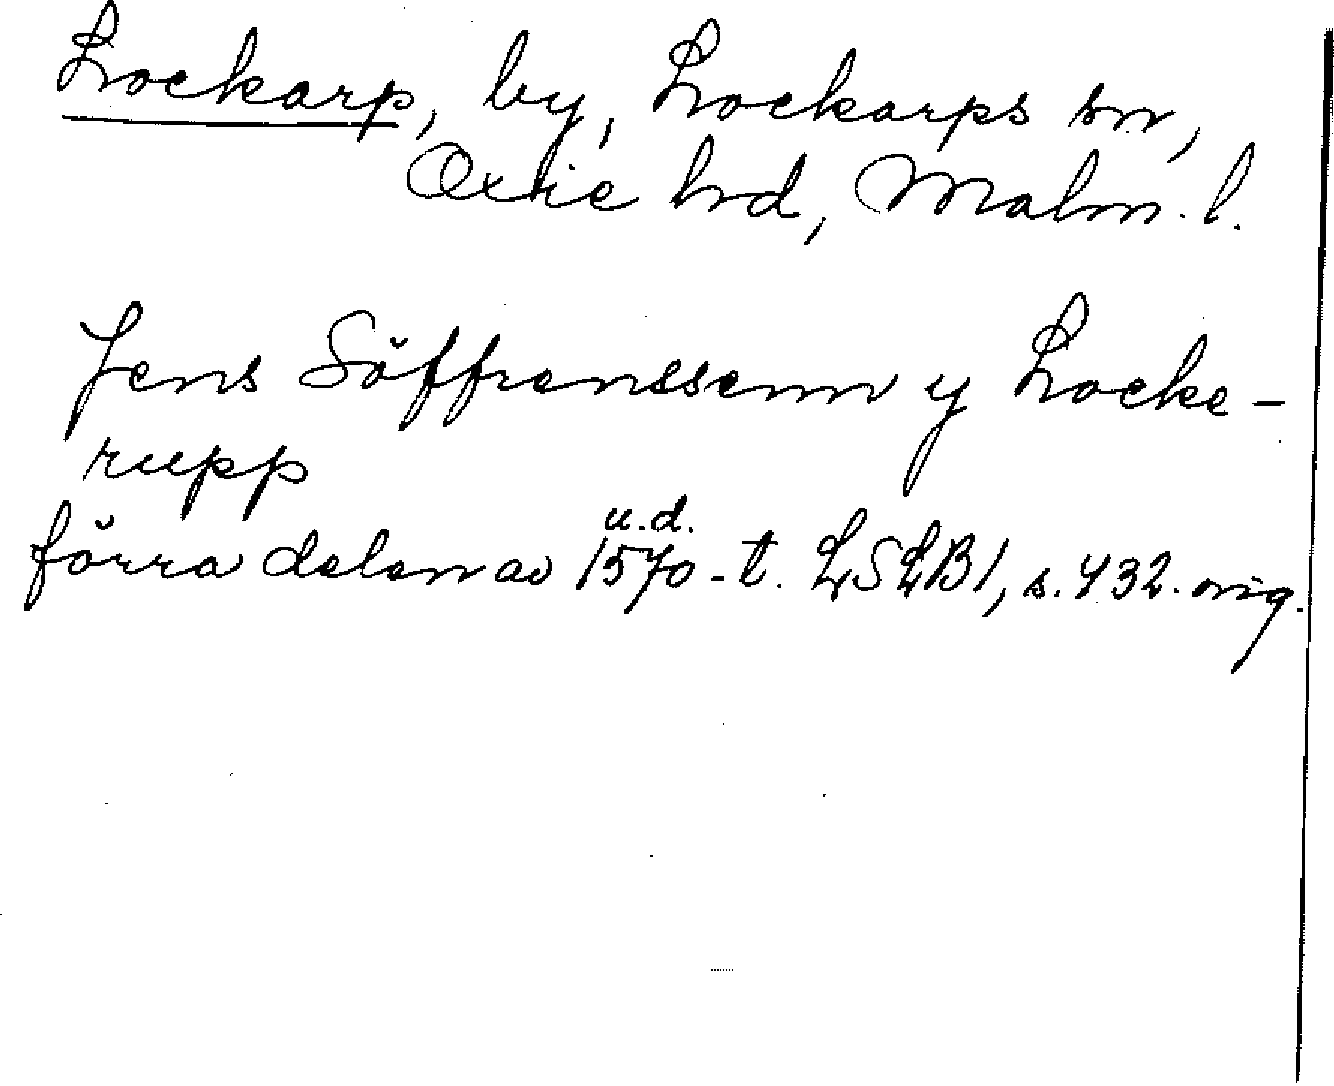 Lockarp, by, Lockarps sn,
Oxie hd, Malm. l.
Jens Söffrenssenn y Locke-
rupp
u.d.
förra delen av 1570-t. LSLB1, s. 432. orig.